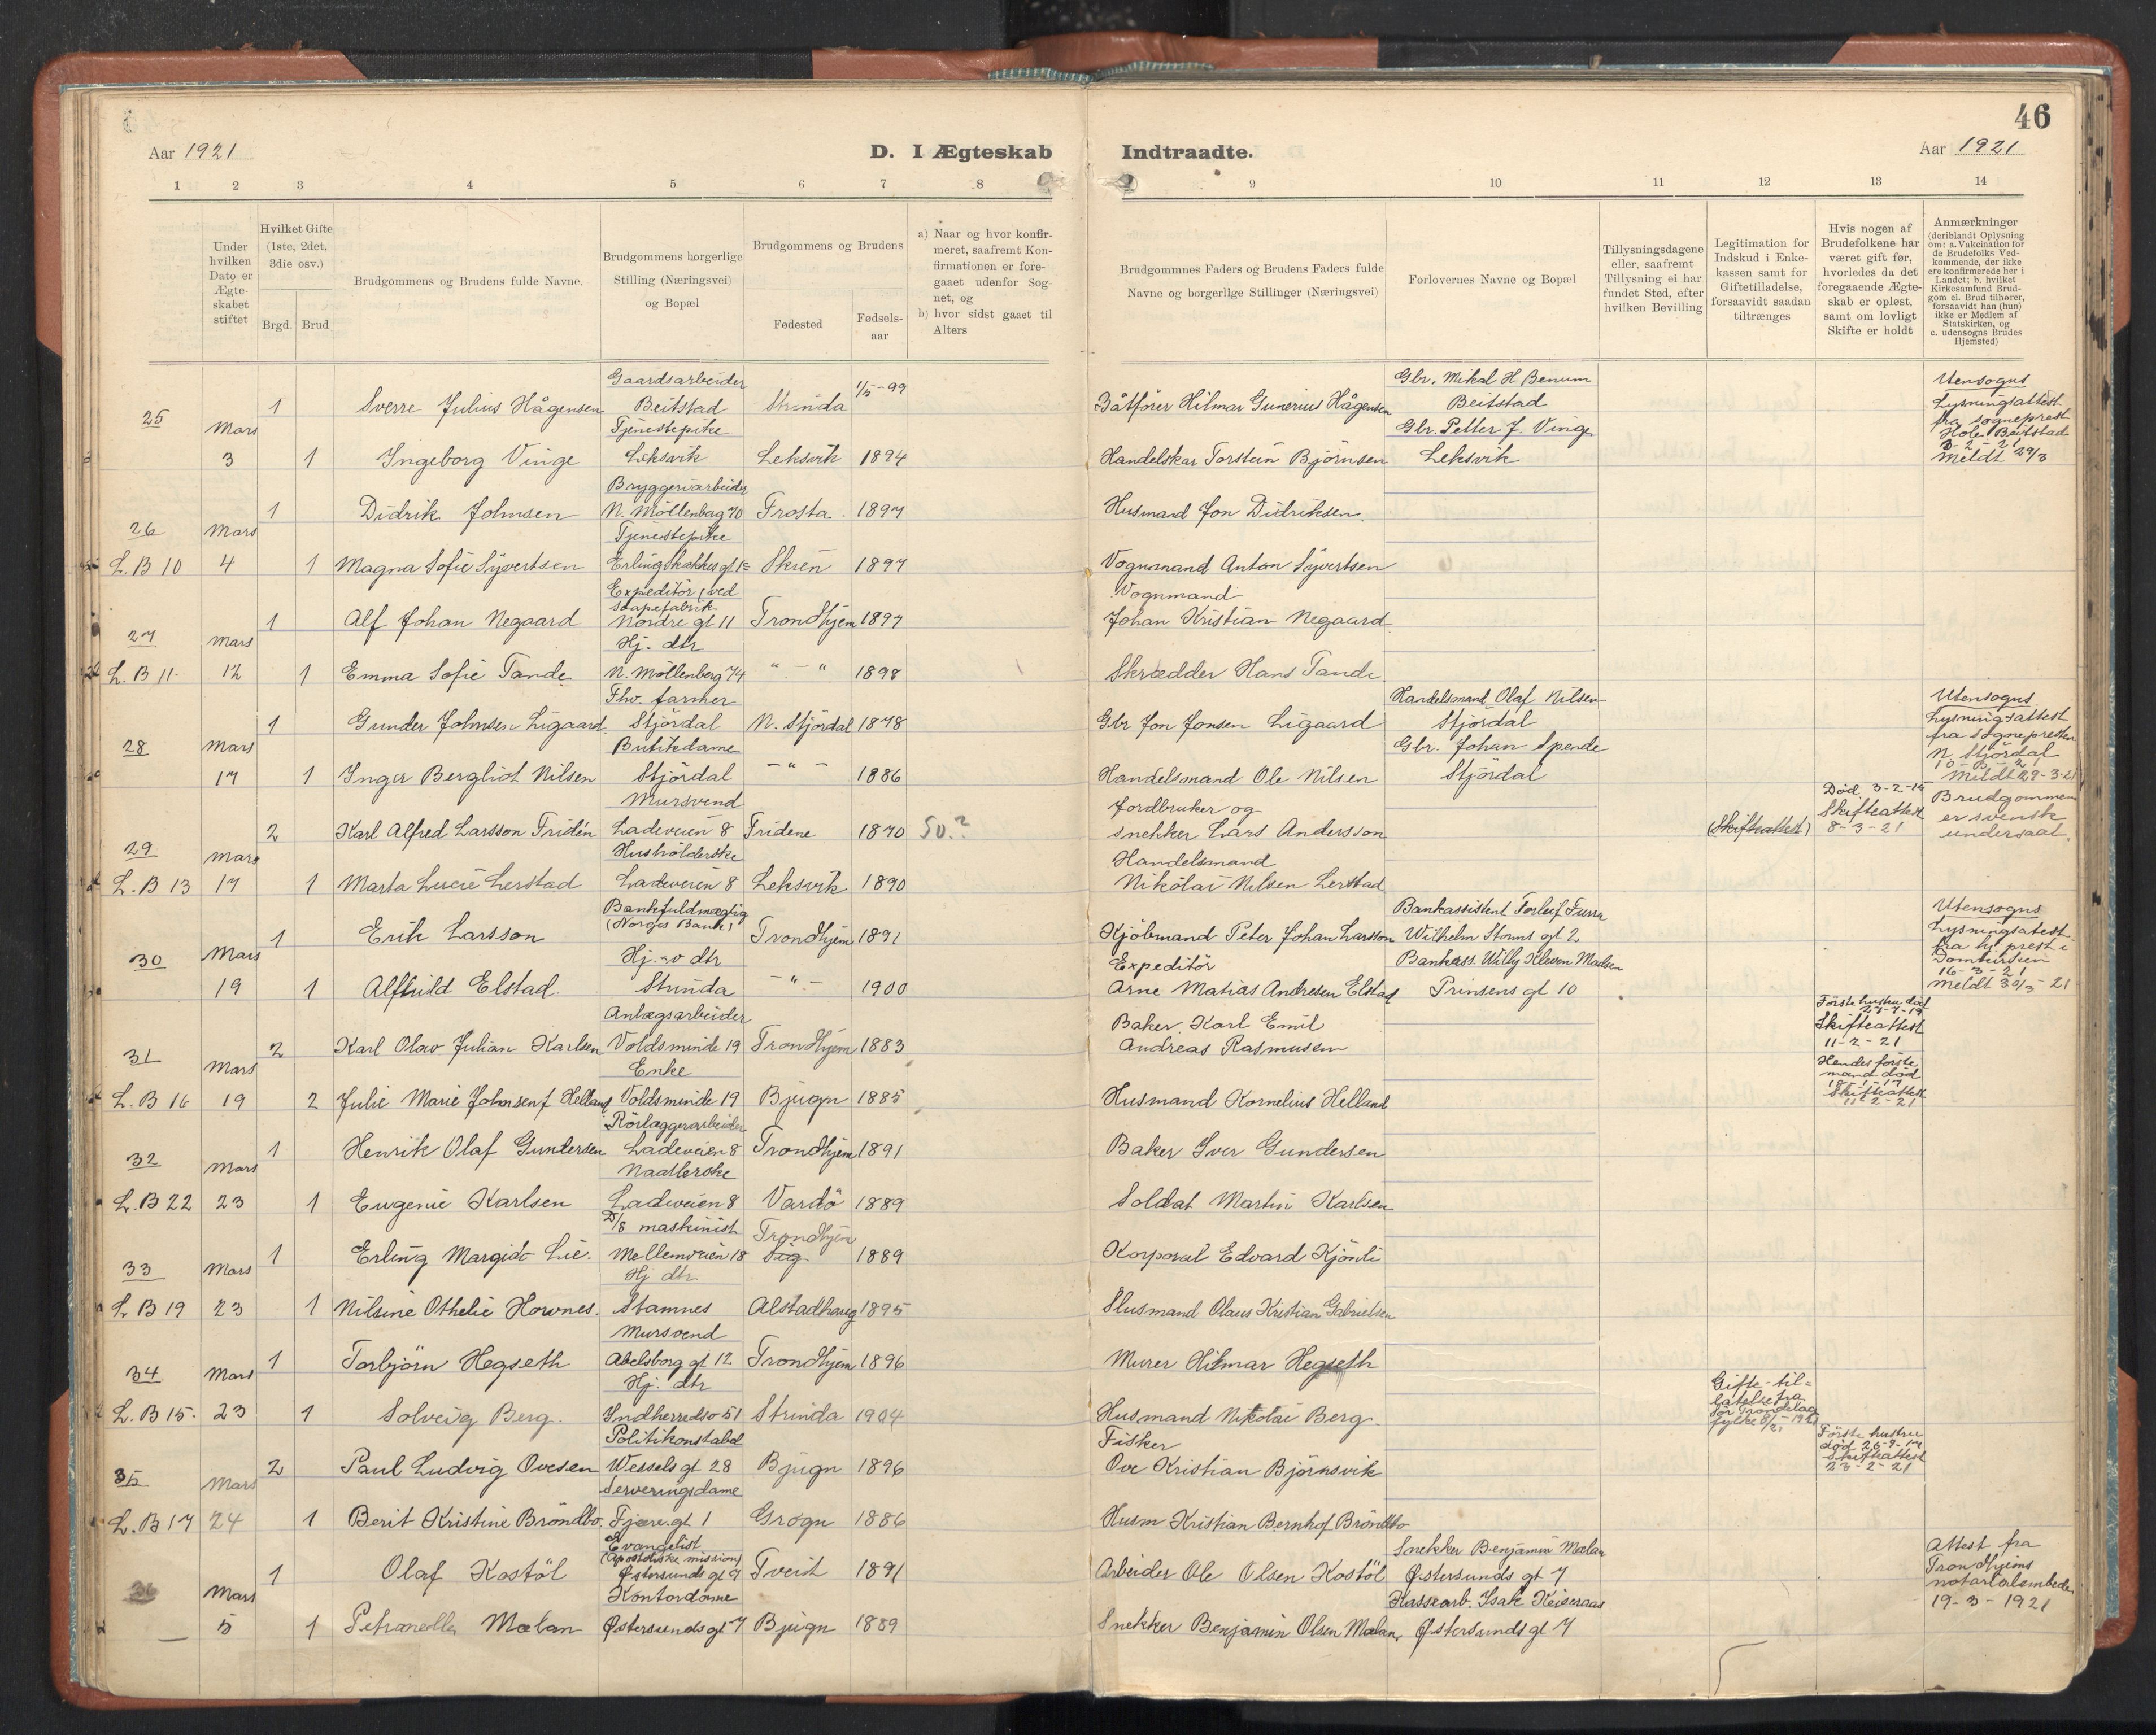 46
Aar 1921
D. I Ægteskab Indtraadte.
Aar 1921
1 2 3 4 5 6 7 8 9 10 11 12 13 14
Under hvilken Dato er Ægteskabet stiftet
Hvilket Gifte (1ste, 2det, 3die osv.)
Brgd. Brud
Brudgommens og Brudens fulde Navne.
Brudgommens borgerlige Stilling (Næringsvei) og Bopæl
Brudgommens og Brudens
Fødested
Fødselsaar
a) Naar og hvor konfirmeret, saafremt Konfirmationen er foregaaet udenfor Sognet, og
b) hvor sidst gaaet til Alters
Brudgommnes Faders og Brudens Faders fulde Navne og borgerlige Stillinger (Næringsvei)
Forlovernes Navne og Bopæl
Tillysningsdagene eller, saafremt Tillysning ei har fundet Sted, efter hvilken Bevilling
Legitimation for Indskud i Enkekassen samt for Giftetilladelse, forsaavidt saadan tiltrænges
Hvis nogen af Brudefolkene har været gift før, hvorledes da det foregaaende Ægteskab er opløst, samt om lovligt Skifte er holdt
Anmærkninger (deriblandt Oplysning om: a. Vakcination for de Brudefolks Vedkommende, der ikke ere konfirmerede her i Landet; b. hvilket Kirkesamfund Brudgom el. Brud tilhører, forsaavidt han (hun) ikke er Medlem af Statskirken, og c. udensogns Brudes Hjemsted)
25 Mars 3
1 Sverre Julius Hågensen Gaardsarbeider Beitstad Strinda 1/5-99 Båtfører Hilmar Gunerius Hågensen Gbr. Mikal H Benum Beitstad
1 Ingeborg Vinge Tjenestepike Leksvik Leksvik 1894 Handelskar Torstein Björnsen Gbr. Petter J. Vinge Leksvik
Utensogns Lysningsattest fra sogneprest Hole Beitstad
Meldt 29/3
26 L.B 10 Mars 4
1 Didrik Johnsen Bryggeriarbeider N. Möllenbag 70 Frosta 1897 Husmand Jon Didriksen
1 Magna Sofie Syvertsen Tjenestepike Erling Skakkes gt Skien 1897 Vognmand Anton Syvertsen
27 L.B 11. Mars 12
1 Alf Johan Negaard Expeditör ved saapefabrik Nordre gt 11 Trondhjem 1897 Vognmand Johan Kristian Negaard
1 Emma Sofie Tande Hj. dtr N. Möllenberg 74 " - " 1898 Skrædder Hans Tande
28 Mars 17
1 Gunder Johnsen Ligaard Fhv. farmer Stjördal N. Stjördal 1878 Gbr Jon Jonsen Ligaard Handelsmand Olaf Nilsen Stjördal
1 Inger Bergliot Nilsen Butikdame Stjördal - " - 1886 Handelsmand Ole Nilsen Gbr. Johan Spende Stjördal
Utensogns Lysningsattest fra sognepresten N. Stjördal
Meldt 29-3-21
29 L.B 13 Mars 17
2 Karl Alfred Larsson Fridén Mursvend Ladeveien 8 Fridene 1870 50.? Jordbruker og snekker Lars Andersson (Skifteattest) Död 3-2-16 Skifteattest 8-3-21 Brudgommen er svensk undersaat.
1 Marta Lucie Lerstad Husholderske Ladeveien 8 Leksvik 1890 Handelsmand Nikolai Nilsen Lerstad
30 Mars 19
1 Erik Larsson Bankfuldmægtig (Norges Bank) Trondhjem 1891 Kjöbmand Peter Johan Larsson Bankassistent Torleif Wilhelm Storms gt 2
1 Alfhild Elstad. Hj.v dtr Strinda - " - 1900 Expeditör Arne Matias Andresen Elstad Bankass. Willy Kleven Madsen Prinsens gt 10
Utensogns Lysningsatest fra hj. prest i Domkirken 16-3-21
Meldt 30/3-21
31 L.B 16 Mars 19
2 Karl Olav Julian Karlsen Anlægsarbeider Voldsminde 19 Trondhjem 1883 Baker Karl Emil Andreas Rasmusen Første hustru död Skifteattest 11-2-21
2 Julie Marie Johnsen f Helland Enke Voldsminde 19 Bjugn 1885 Husmand Kornelius Helland Hendes förste mand död 18-1-17 Skifteattest 11-2-21
32 L.B 22 Mars 23
1 Henrik Olaf Gundersen Rörlæggerarbeider Ladeveien 8 Trondhjem 1891 Baker Iver Gundersen
1 Eugenie Karlsen Naatlerske Ladeveien 8 Vardö 1889 Soldat Martin Karlsen
33 L.B 19 Mars 23
1 Erling Margido Lie. D/S maskinist Mellemveien 18 Trondhjem 1889 Korporal Edvard Kjönli
1 Nilsine Othelie Hovnes. Hj dtr Stamnes Alstadhaug 1895 Husmand Olaus Kristian Gabrielsen
34 L.B 15. Mars 23
1 Torbjörn Hegseth Mursvend Abelsborg gt 12 Trondhjem 1896 Murer Hilmar Hegseth
1 Solveig Berg. Hj. dtr Indherredsv 51 Strinda 1904 Husmand Nikolai Berg. Gifte-tillatelse fra Sör Trøndelag fylke
35 L.B 17 Mars 24
2 Paul Ludvig Ovesen Politikonstabel Wessels gt 28 Bjugn 1896 Fisker Ove Kristian Björnsvik Förste hustru död 26-9-17 Skifteattest 23-2-21
1 Berit Kristine Bröndbo. Serveringsdame Fjære gt 1 Grogn 1886 Husm Kristian Bernhof Bröndbo
36 Mars 5
1 Olaf Kostöl Evangelist (Apostoliske mission) Østersunds gt 7 Tveit 1891 Arbeider Ole Olsen Kostöl Snekker Benjamin Mælan Østersunds gt 7
1 Petranella Mælan Kontordame Østersunds gt 7 Bjugn 1889 Snekker Benjamin Olsen Mælan, Kassearb. Isak Keiseraas Østersunds gt 7
Attest fra Trondhjems notarialembede 19-3-1921